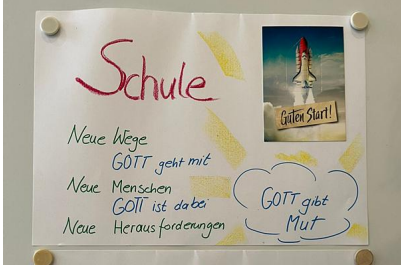 Schule
Guten Start!
Neue Wege
GOTT geht mit
Neue Menschen
GOTT ist dabei
Neue Herausforderungen
GOTT gibt
Mut